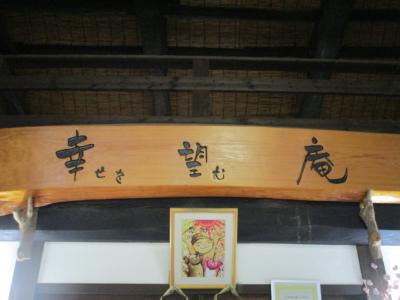 幸せを望む庵